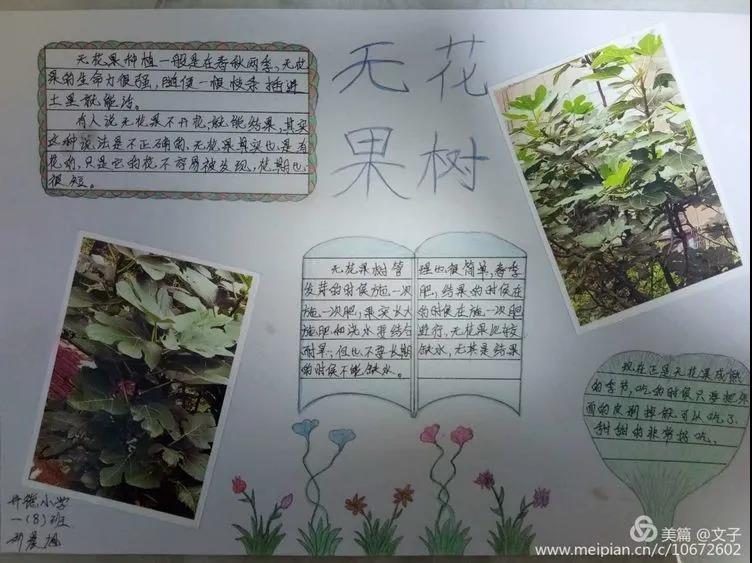 无花果树
无花果种植一般是在春秋两季,无花
果的生命力很强,随便一根枝条插进
土里就能活。
有人说无花果不开花,就能结果,其实
这种说法是不正确的,无花果其实也是有
花的,只是它的花不容易被发现,花期也
很短。
无花果树管理也很简单,春季
发芽的时候施一次肥,结果的时候在
施一次肥,果实长大的时候在施一次肥
施肥和浇水要结合进行,无花果比较
耐旱,但也不要长期缺水,尤其是结果
的时候不能缺水。
现在正是无花果成熟
的季节,吃的时候只要把外
面的皮剥掉就可以吃了
甜甜的非常好吃。
小学
一(8)班
美篇 @文子
www.meipian.cn/c/10672602